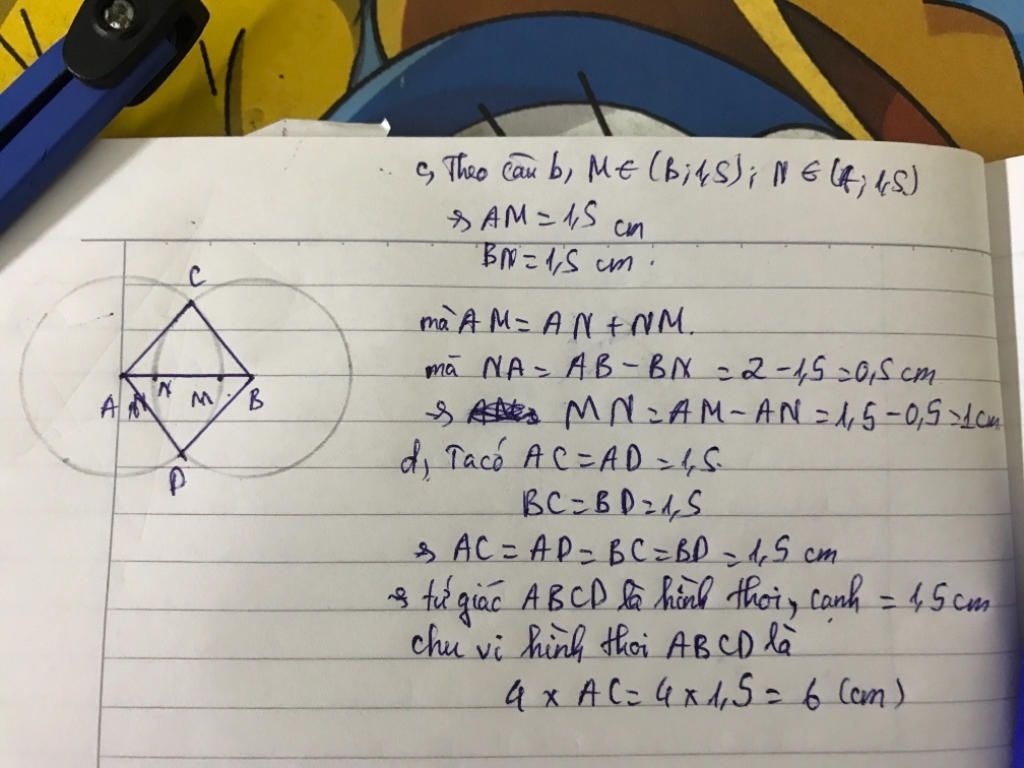 c, Theo câu b, M ∈ (B; 1,5); N ∈ (A; 1,5)
⇒ AM = 1,5 cm
BN = 1,5 cm.
mà AM = AN + NM.
mà NA = AB - BN = 2 - 1,5 = 0,5 cm
⇒ MN = AM - AN = 1,5 - 0,5 = 1 cm
d, Ta có AC = AD = 1,5.
BC = BD = 1,5
⇒ AC = AD = BC = BD = 1,5 cm
⇒ tứ giác ABCD là hình thoi, cạnh = 1,5 cm
chu vi hình thoi ABCD là
4 x AC = 4 x 1,5 = 6 (cm)
C
N
A
M
B
D